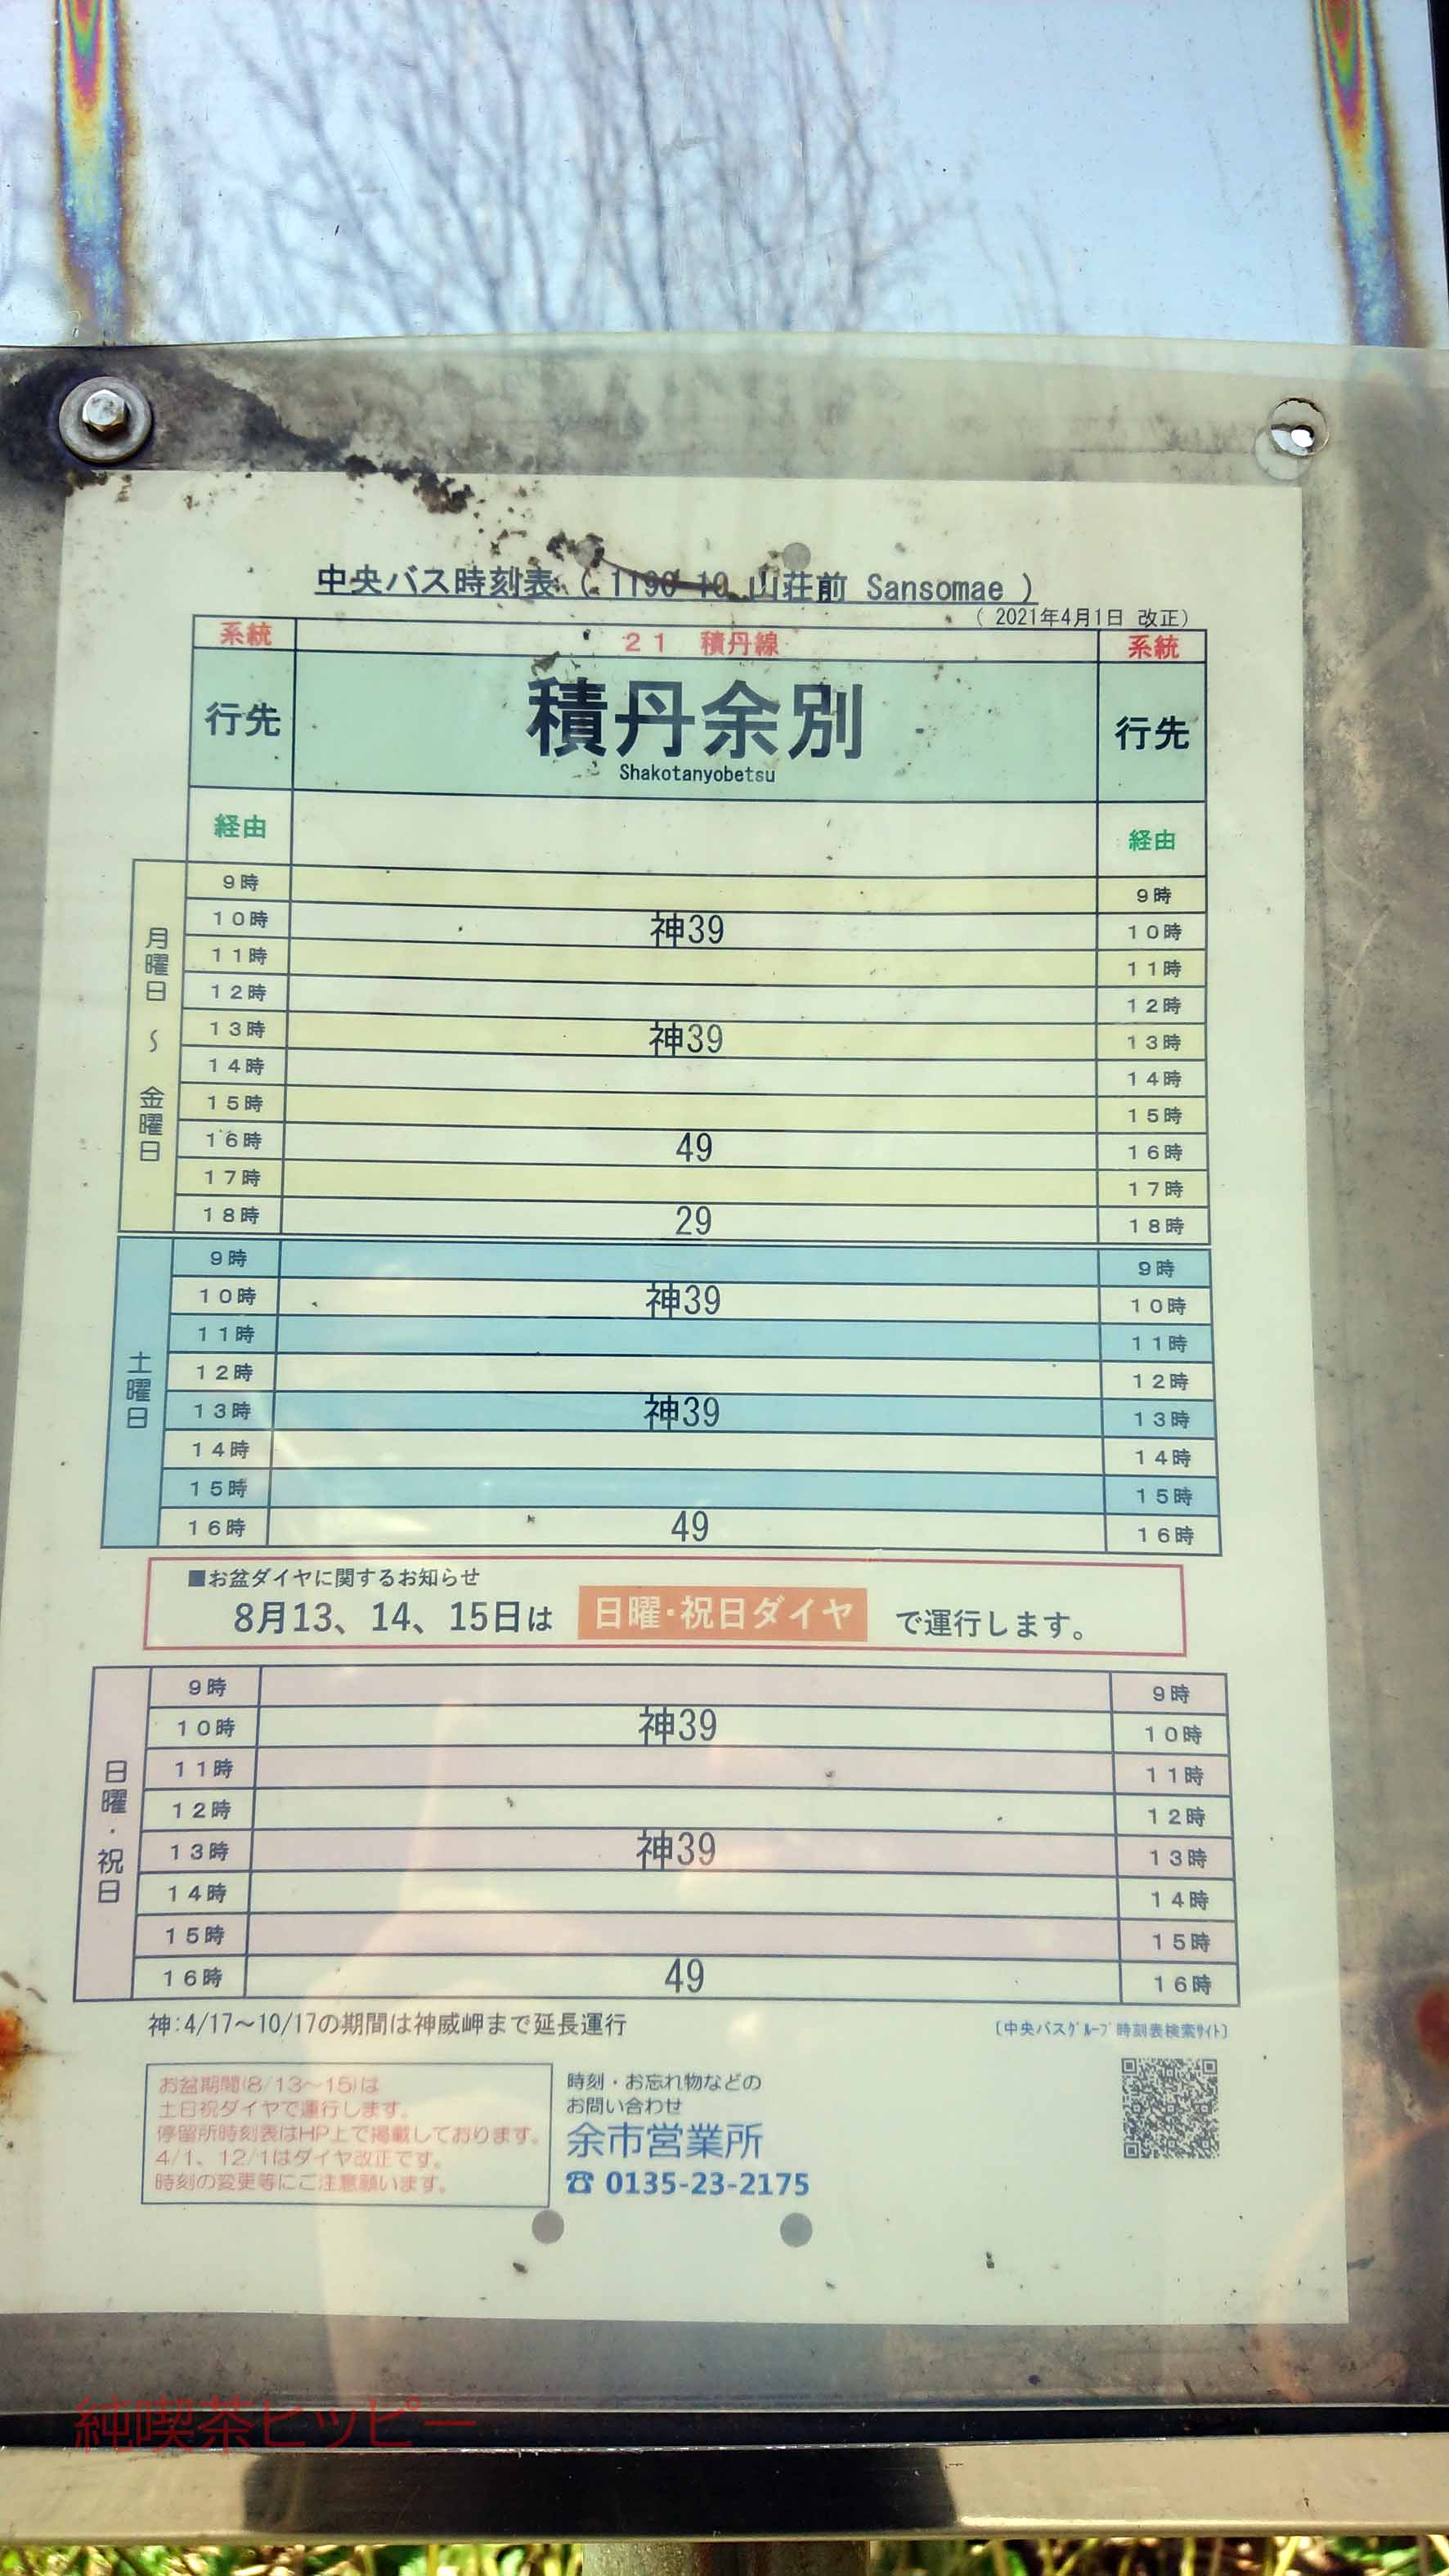 中央バス時刻表 ( 1190-10 山荘前 Sansomae )
( 2021年4月1日 改正)
系統 21 積丹線 系統
行先 積丹余別 行先
Shakotanyobetsu
経由 経由
月曜日 ～ 金曜日
9時 9時
10時 神39 10時
11時 11時
12時 12時
13時 神39 13時
14時 14時
15時 15時
16時 49 16時
17時 17時
18時 29 18時
土曜日
9時 9時
10時 神39 10時
11時 11時
12時 12時
13時 神39 13時
14時 14時
15時 15時
16時 49 16時
■お盆ダイヤに関するお知らせ
8月13、14、15日は 日曜・祝日ダイヤ で運行します。
日曜・祝日
9時 9時
10時 神39 10時
11時 11時
12時 12時
13時 神39 13時
14時 14時
15時 15時
16時 49 16時
神:4/17～10/17の期間は神威岬まで延長運行
〔中央バスグループ時刻表検索サイト〕
お盆期間(8/13～15)は
土日祝ダイヤで運行します。
停留所時刻表はHP上で掲載しております。
4/1、12/1はダイヤ改正です。
時刻の変更等にご注意願います。
時刻・お忘れ物などの
お問い合わせ
余市営業所
☎ 0135-23-2175
純喫茶ヒッピー